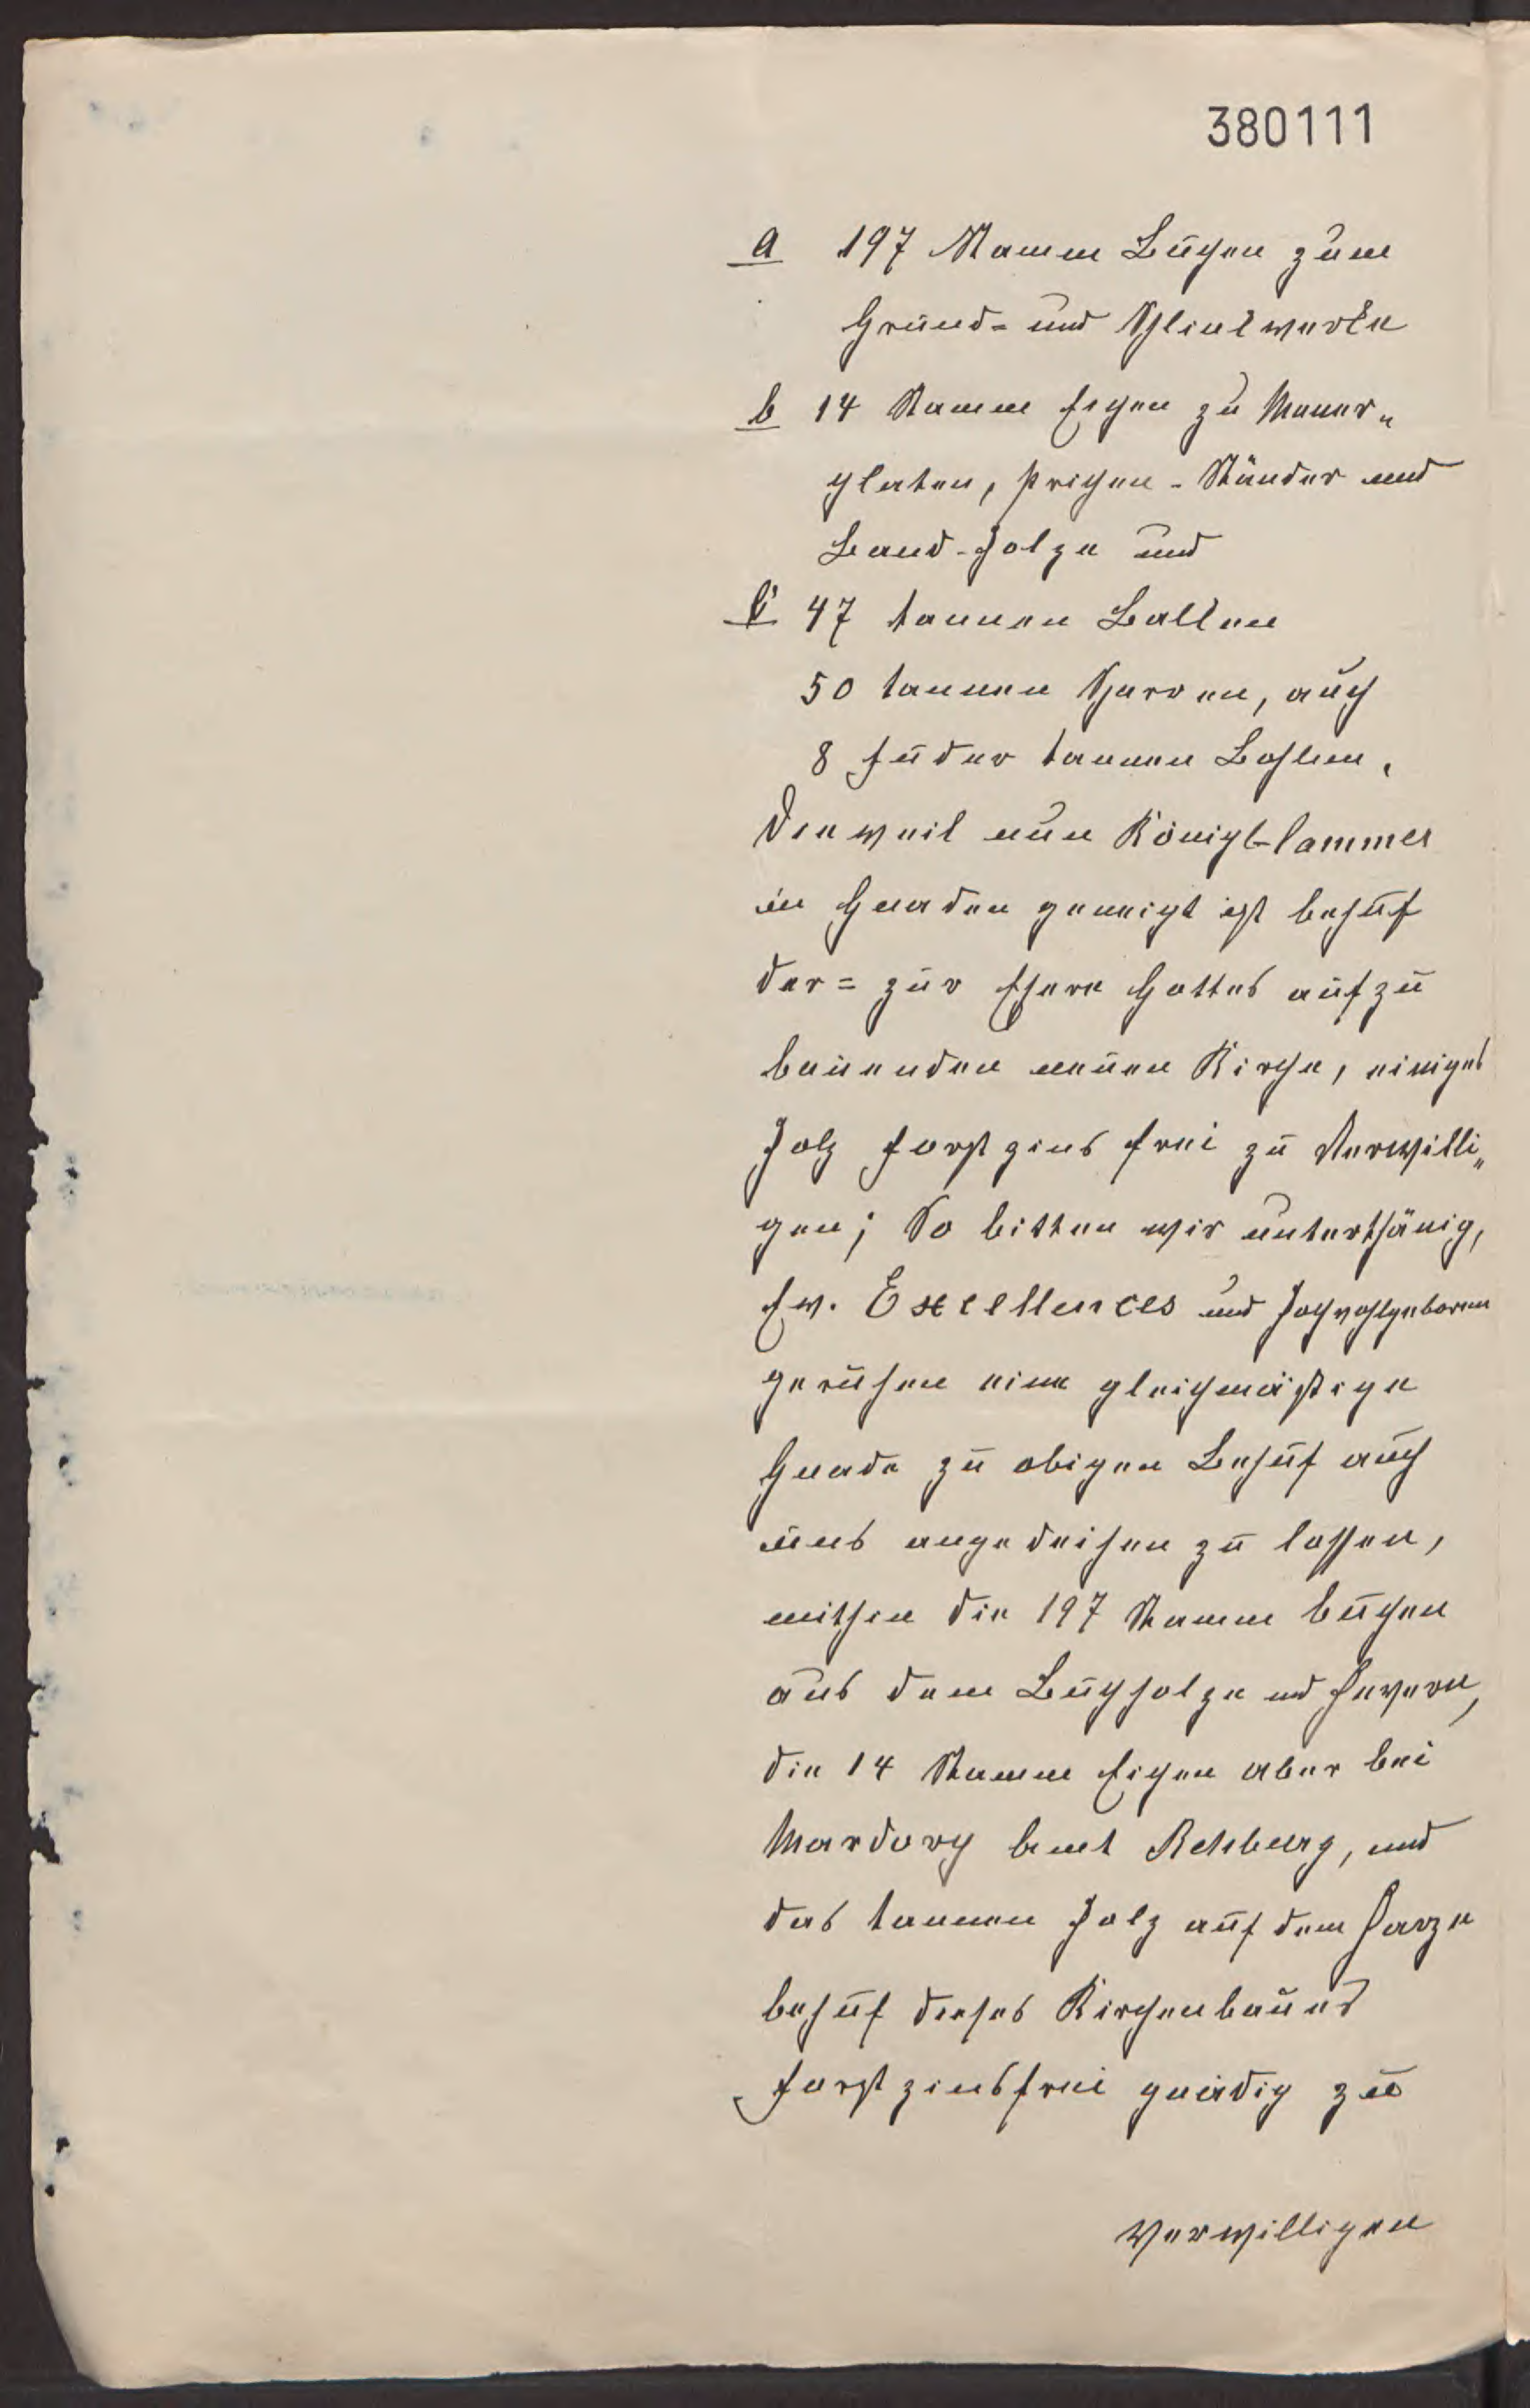 380111
a 197 Stamm Büchen zum
Grund= und Sthielwerke
b 14 Stamm Eichen zu Mauer„
platen, Priechen-Ständer und
Band-Holze und
c 47 tannen Balken
50 tannen Sparren, auch
8 Fuder tannen Bohlen,
Dieweil nun Königl. Cammer
in Gnaden geneigt ist behuf
der= zur Ehere Gottes aufzu
bauenden neuen Kirche, einiges
Holz forst zins frei zu Verwilli„
gen; So bitten wir unterthänig,
Ew. Excellences und Hochwohlgeboren
geruhen eine gleichmäßige
Gnade zu obigen Behuf auch
uns angedeihen zu lassen,
mithin die 197 Stamm büchen
aus dem Buchholze und
die 14 Stamm Eichen aber bei
Mardorf Amt Rehburg, und
das tannen Holz auf dem Harze
behuf dieses Kirchenbaues
forst zinsfrei gnädig zu
Verwilligen